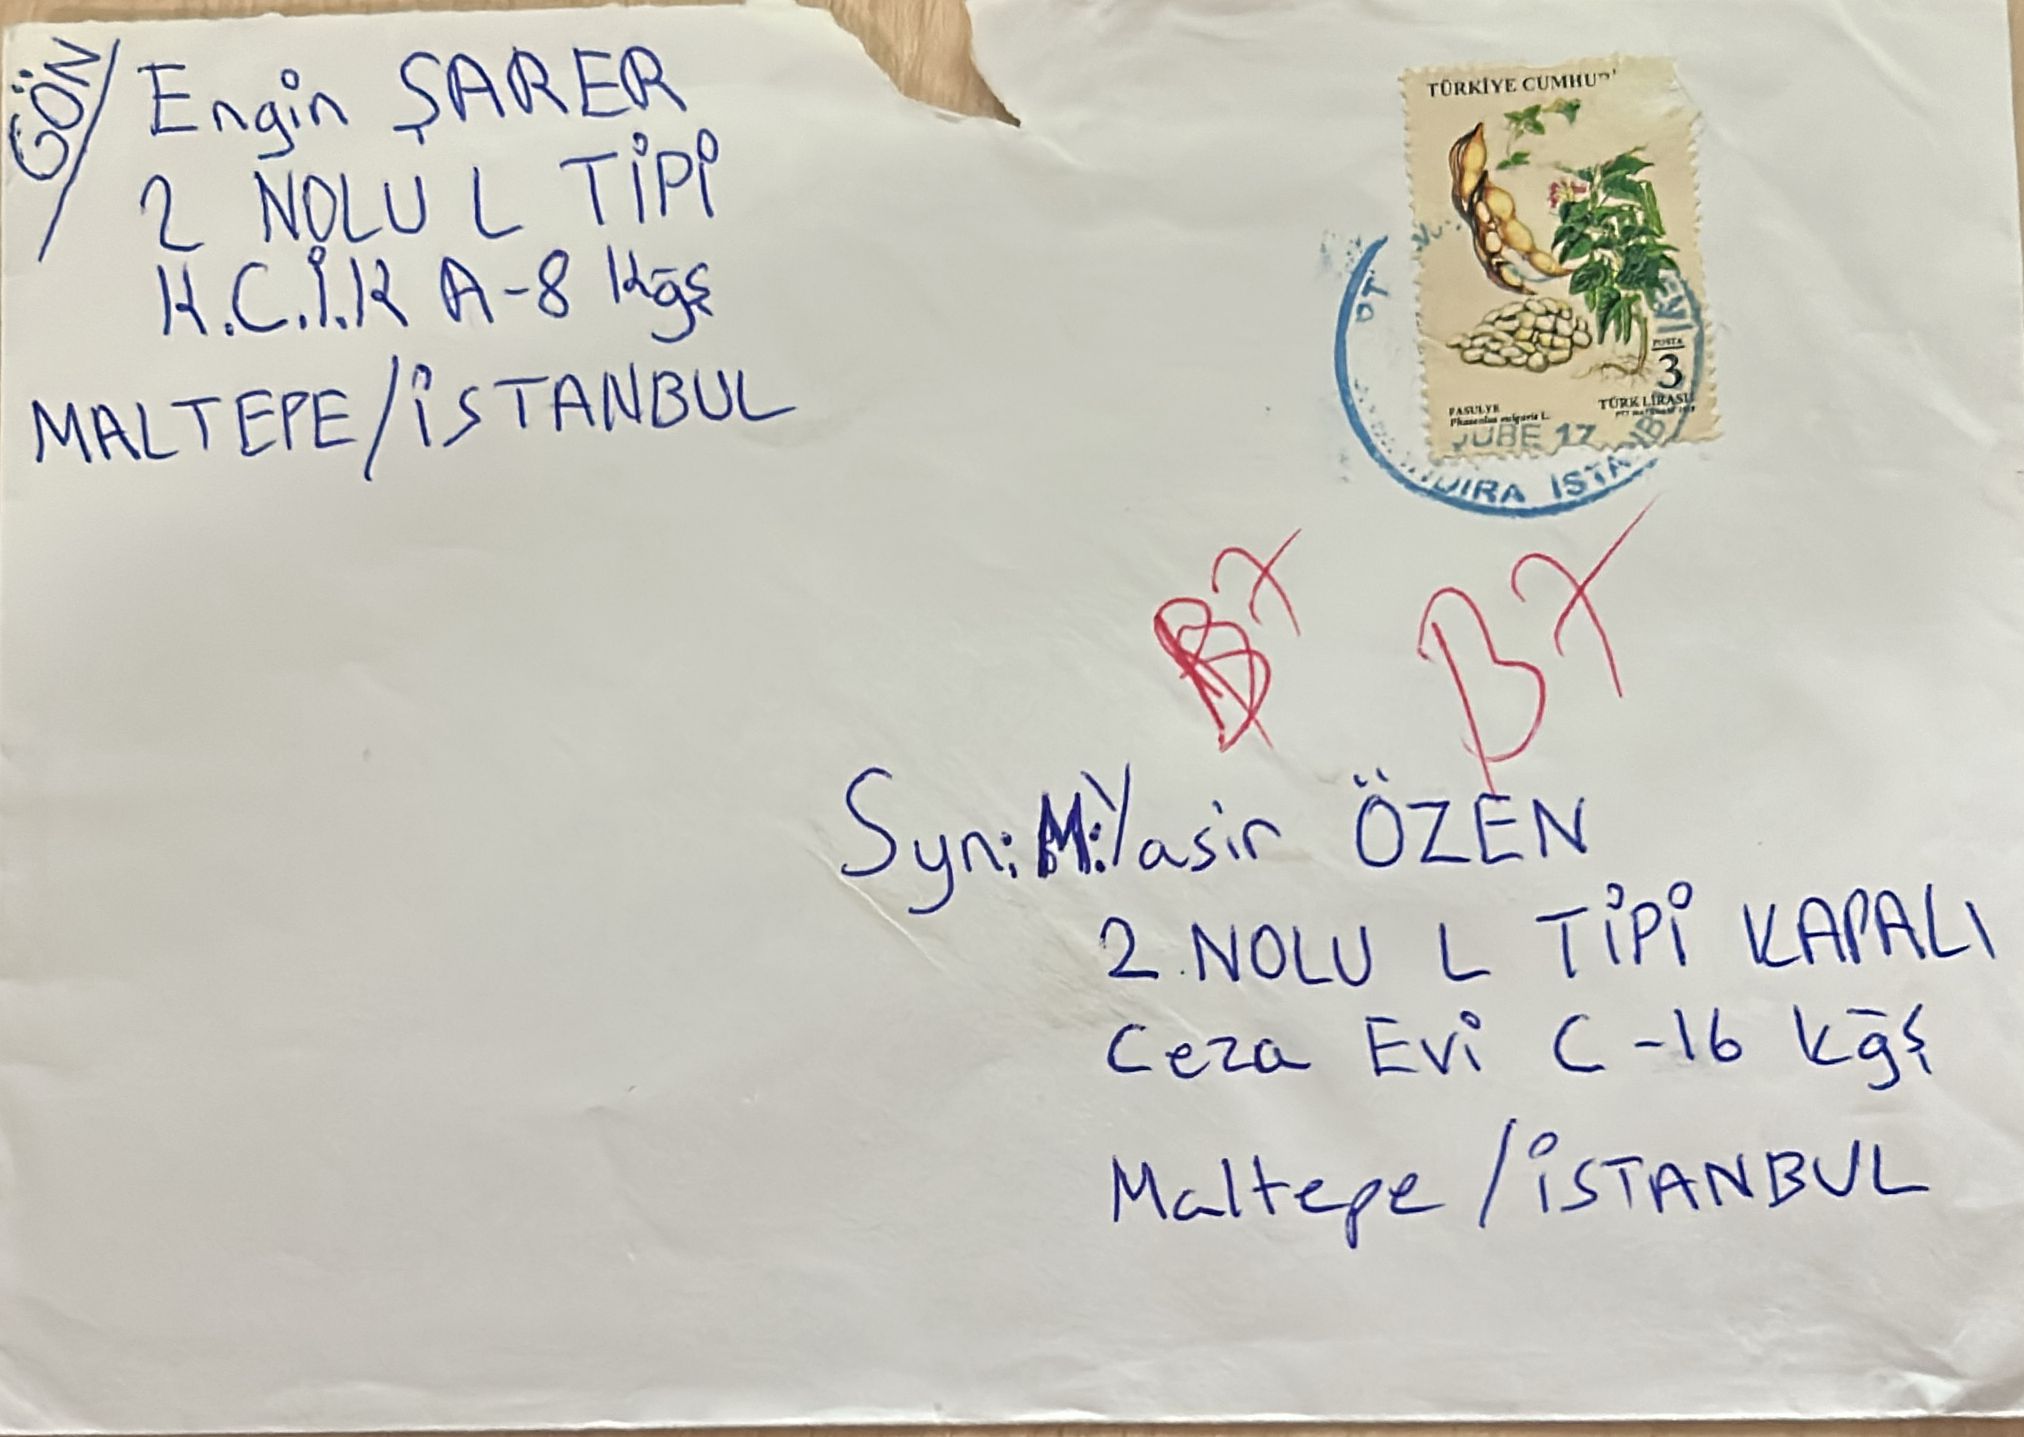 GÖN/ Engin ŞARER
2 NOLU L TİPİ
K.C.İ.K A-8 Kğş
MALTEPE/İSTANBUL
TÜRKİYE CUMHU
POSTA
3
TÜRK LİRASI
FASULYE
Phaseolus vulgaris L.
ŞUBE 17
İSTANB
B7 B7
Syn: M. Yasir ÖZEN
2. NOLU L TİPİ KAPALI
Ceza Evi C-16 Kğş
Maltepe / İSTANBUL